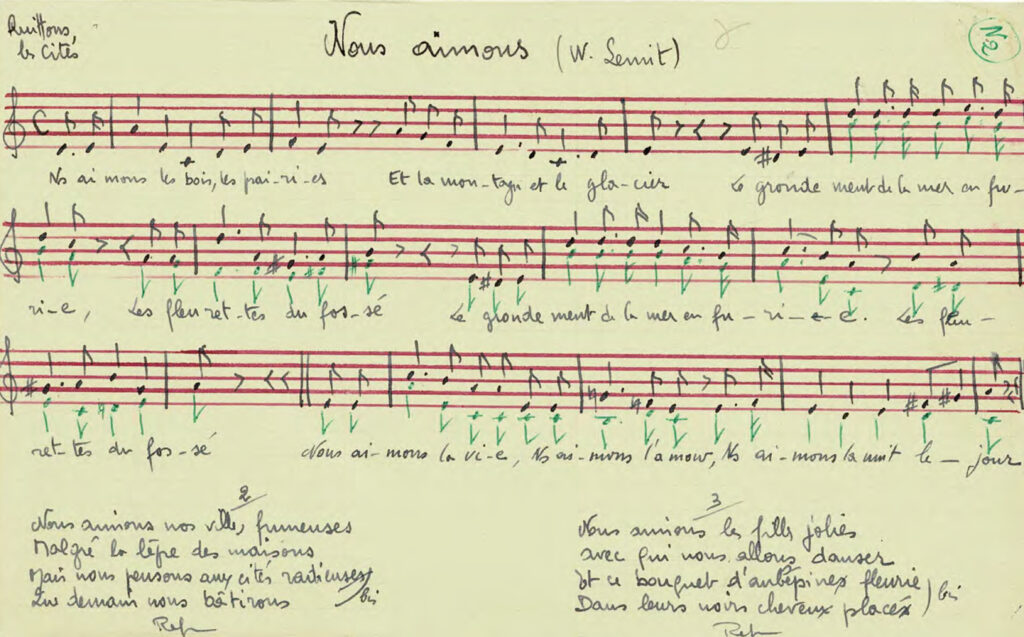 Quittons,
les Cités
Nous aimons (W. Lemit)
N2
Ns ai mons les bois, les prai-ri-es Et la mon-tagn et le gla-cier Le gronde ment de la mer en fu-
ri-e, Les fleu ret-tes du fos-sé Le gronde ment de la mer en fu-ri-e-e. Les fleu-
ret-tes du fos-sé Nous ai-mons la vi-e, Ns ai-mons l'amour, Ns ai-mons la nuit le - jour
2
Nous aimons nos villes fumeuses
Malgré la lèpre des maisons
Mais nous pensons aux cités radieuses
Que demain nous bâtirons
bis
Ref
3
Nous aimons les filles jolies
avec qui nous allons danser
Et ce bouquet d'aubépines fleurie
Dans leurs noirs cheveux placés
bis
Ref